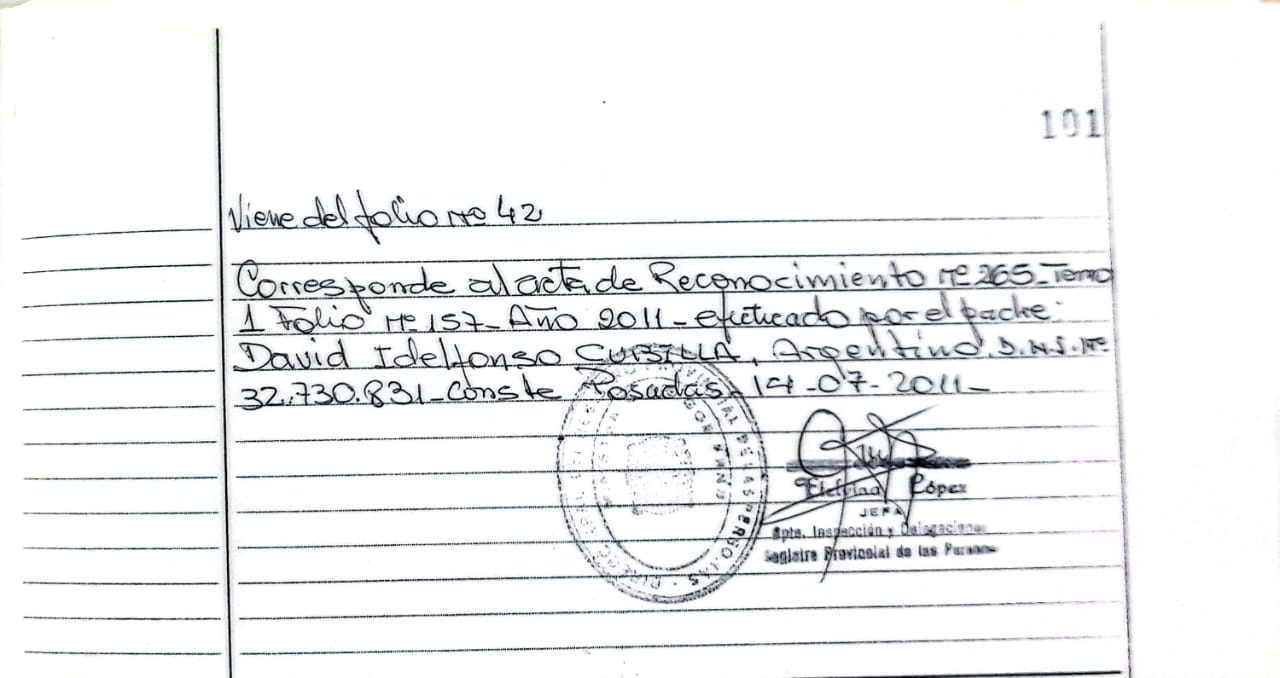 101
Viene del folio Nº 42
Corresponde al acta de Reconocimiento Nº 265_Tomo
1 Folio Nº 157_Año 2011_efectuado por el padre:
David Idelfonso, Argentino. D.N.I. Nº
32.730.831_Conste Posadas_14-07-2011_
López
JEFA
Dpto. Inspección y Delegaciones
Registro Provincial de las Personas